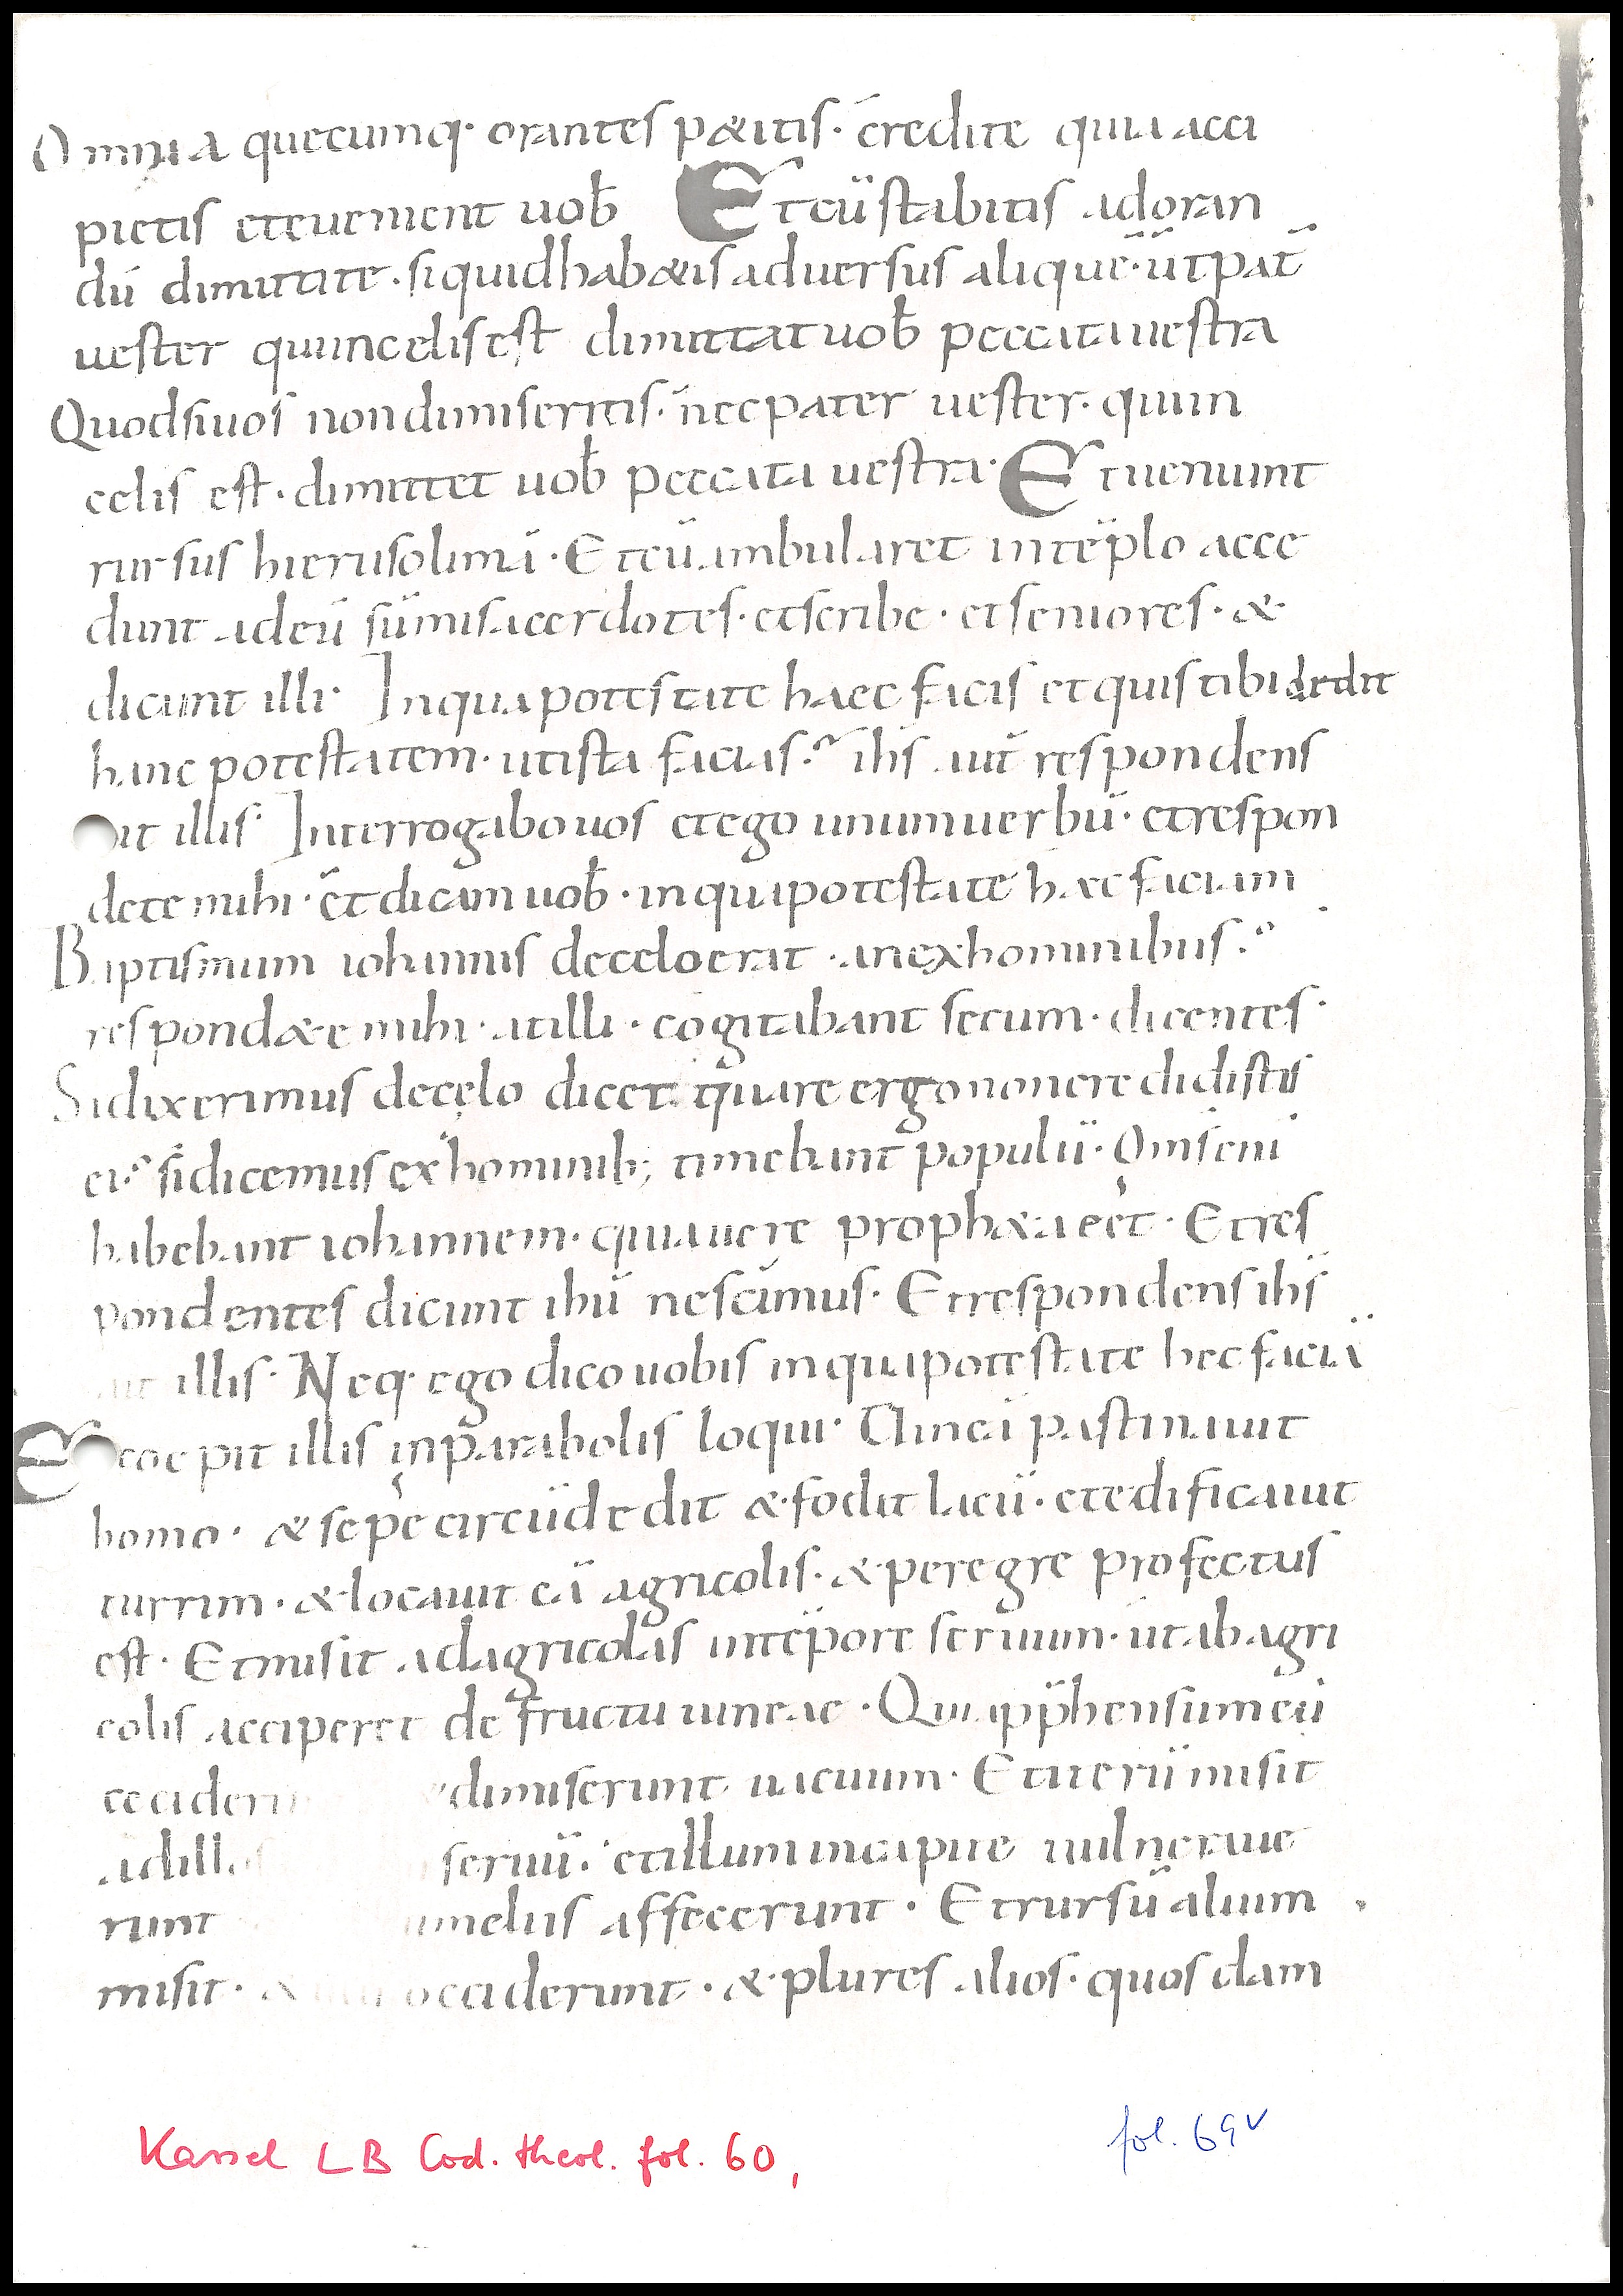 Omnia quecumq· orantes p&itis· credite quia acci
pietis eteuenient uob̄ Etcū stabitis adoran
dū dimittite· siquidhab&is aduersus aliquē· ut pat̄
uester quiincelisest dimittat uob̄ peccata uestra
Quodsiuos nondimiseritis· necpater uester· quiin
celis est· dimittet uob̄ peccata uestra· Et ueniunt
rursus hierusolimā· Etcū ambularet intēplo acce
dunt adeū sūmisacerdotes· etscribe· etseniores· &
dicunt illi· Inquapotestate haec facis etquis tibi dedit
hanc potestatem· utista facias· ihs̄ aut̄ respondens
ait illis· Interrogabouos etego unumuerbū· etrespon
dete mihi· et dicam uob̄· inquapotestate haec faciam
Baptismum iohannis decelo erat· anexhominibus·
respond&e mihi· atilli· cogitabant secum· dicentes·
Sidixerimus decelo dicet quare ergo noncredidistis
ei· sidicemus exhominib; timebant populū· Om̄s eni
habebant iohannem· quia uere proph&a eēt· Etres
pondentes dicunt ihū nescimus· Etrespondens ihs̄
ait illis· Neq· ego dico uobis inquapotestate hec faciā
E coepit illis inparabolis loqui· Uineā pastinauit
homo· & sepē circūdedit & fodit lacū· etedificauit
turrim· & locauit eā agricolis· & peregre profectus
est· Etmisit adagricolas intēpore seruum· ut ab agri
colis acciperet de fructu uineae· Qui app̄hensum eū
ceciderunt dimiserunt uacuum· Etiterū misit
adillos seruū· etillum incapite uulneraue
runt umeliis affecerunt· Etrursū alium
misit· & occiderunt· & plures alios· quosdam
Kassel LB Cod. theol. fol. 60,
fol. 69v